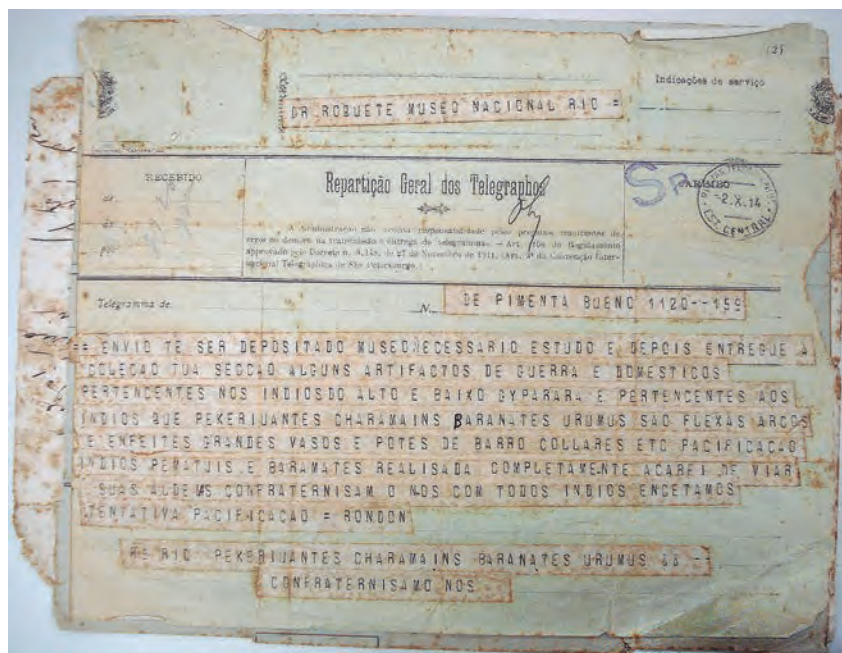 (2)
Indicações de serviço
DR ROQUETE MUSEO NACIONAL RIO =
RECEBIDO
de
às
por
Repartição Geral dos Telegraphos
A Administração não acceita responsabilidade pelos prejuizos resultantes de
erros ou demora na transmissão e entrega de telegrammas. — Art. do Regulamento
approvado pelo Decreto n. 9.148, de 27 de Novembro de 1911. (Art. 3º da Convenção Inter-
nacional Telegraphica de São Petersburgo.)
CARIMBO
-2.X.14
EST. CENTRAL
Telegramma de
N.
DE PIMENTA BUENO 1120--159
= ENVIO TE SER DEPOSITADO MUSEO NECESSARIO ESTUDO E DEPOIS ENTREGUE A
COLECAO TUA SECCAO ALGUNS ARTIFACTOS DE GUERRA E DOMESTICOS
PERTENCENTES NOS INDIOSDO ALTO E BAIXO GYPARARA E PERTENCENTES AOS
INDIOS QUE PEKERIUANTES CHARAMAINS BARANATES URUMUS SAO FLEXAS ARCOS
E ENFEITES GRANDES VASOS E POTES DE BARRO COLLARES ETC PACIFICACAO
INDIOS PEMATUIS E BARAMATES REALISADA COMPLETAMENTE ACABEI DE VIAR
SUAS ALDEMS CONFRATERNISAM O NOS COM TODOS INDIOS ENCETAMOS
TENTATIVA PACIFICACAO = RONDON
RS RIO PEKERIUANTES CHARAMAINS BARANATES URUMUS --
CONFRATERNISAMO NOS